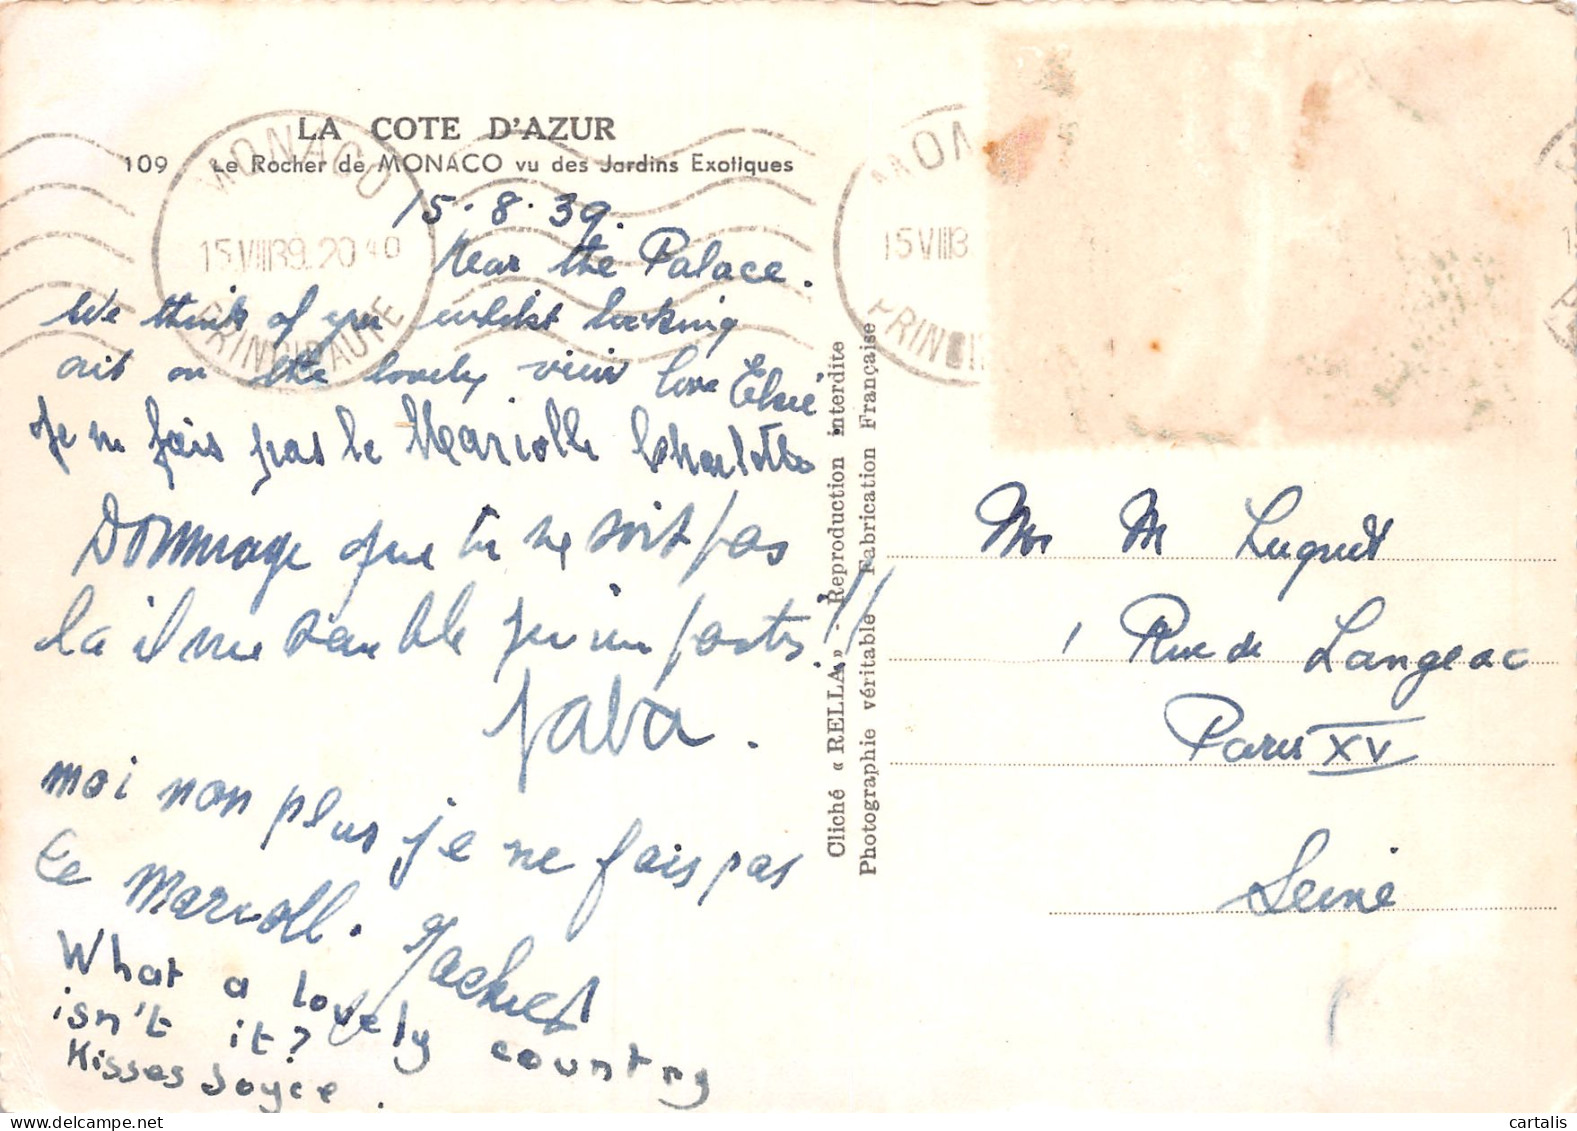 LA COTE D'AZUR
109 Le Rocher de MONACO vu des Jardins Exotiques
MONACO
15 VIII 39. 20 40
PRINCIPAUTE
MON
15 VIII 3
PRINCI
15.8.39.
Near the Palace.
We think of you whilst looking
out on the lovely view love Elsie
Je ne fais pas le Mariolle Charlotte
Dommage que tu ne soit pas
là il me semble qu'un pastis !!!
moi non plus je ne fais pas
le Marioll. Jackie
What a lovely country
isn't it?
Kisses Joyce.
Cliché « RELLA » - Reproduction interdite
Photographie véritable Fabrication Française
Mr M Luquet
1 Rue de Langeac
Paris XV
Seine
cartalis